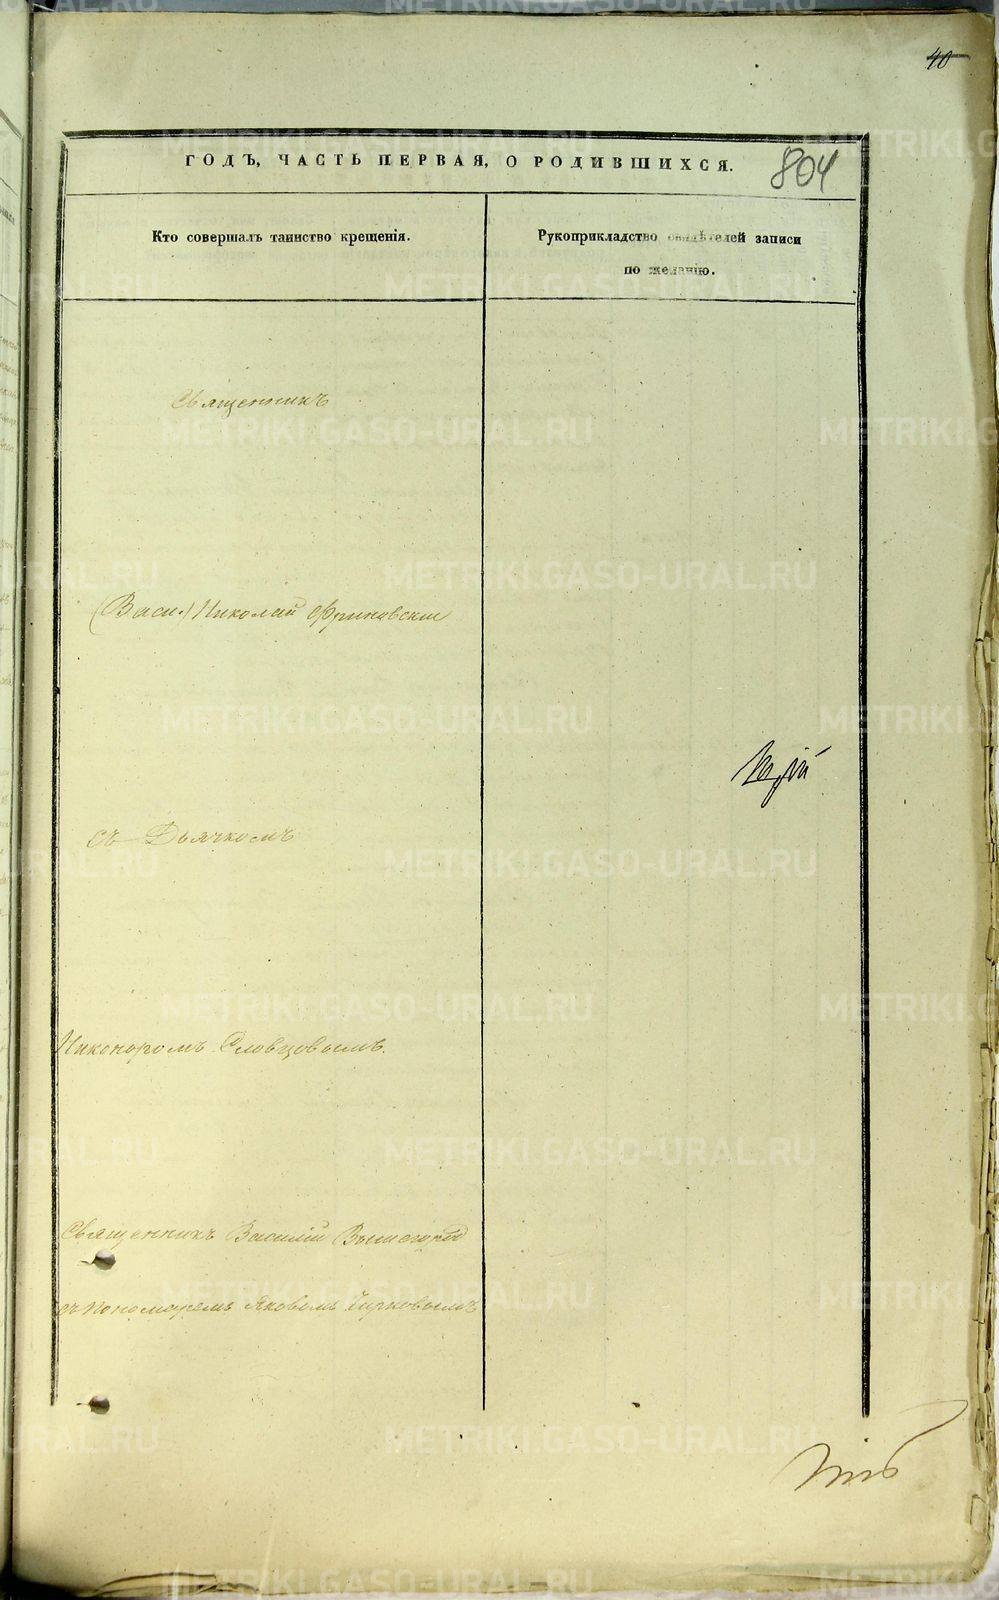 40
ГОДЪ, ЧАСТЬ ПЕРВАЯ, О РОДИВШИХСЯ.
804
Кто совершалъ таинство крещенія.
Рукоприкладство свидѣтелей записи
по желанію.
Священникъ
(Васи.) Николай
съ Дьячкомъ
Никоноромъ Словцовымъ.
Священникъ Василій
съ пономаремъ Яковомъ Чирковымъ
METRIKI.GASO-URAL.RU